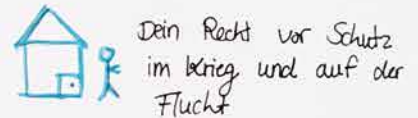 Dein Recht vor Schutz
im Krieg und auf der
Flucht